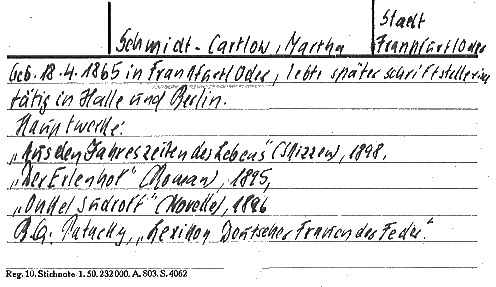 Stadt
Schmidt-Cartlow, Martha Frankfurt/Oder
Geb. 18.4.1865 in Frankfurt/Oder, lebte später schriftstellerisch
tätig in Halle und Berlin.
Hauptwerke:
„Aus den Jahreszeiten des Lebens" (Skizzen), 1898,
„Der Erlenhof" (Roman), 1895,
„Onkel" (Novelle), 1896
Pataky, „Lexikon Deutscher Frauen der Feder".
Reg. 10. Stichnote 1. 50. 232 000. A. 803. S. 4062